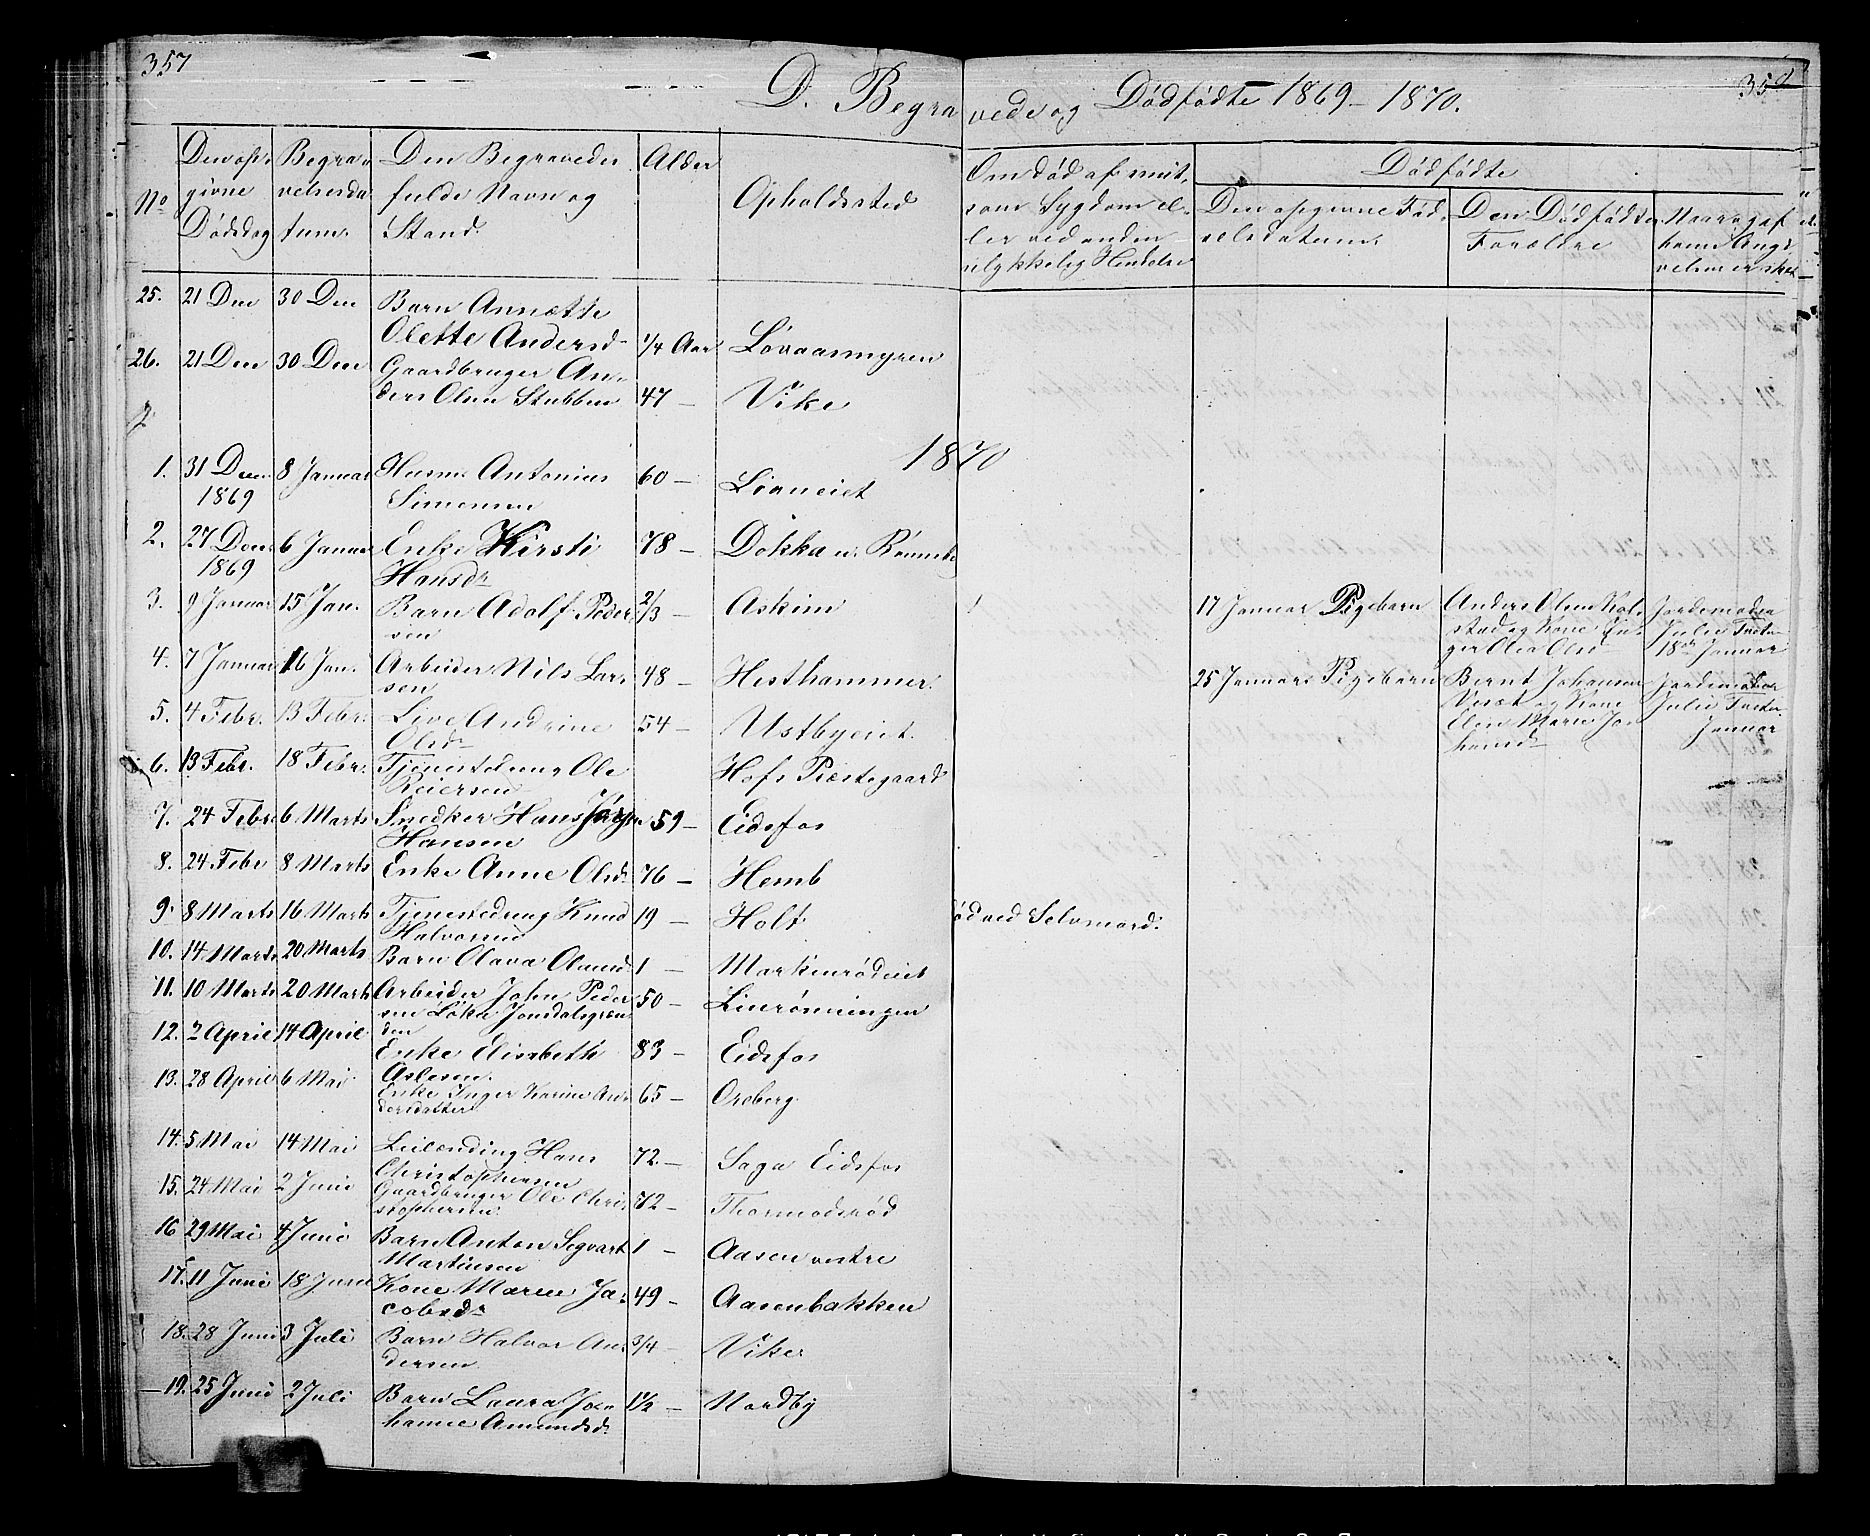 357
358
D. Begravede og Dødfødte 1869-1870.
No
Den opgivne Dødsdag
Begravelsesdatum.
Den Begravedes fulde Navn og Stand.
Alder
Opholdssted
Om død af smitsom Sygdom eller ved anden ulykkelig Hendelse
Dødfødte
Den opgivne Fødselsdatum.
Den Dødfødtes Forældre
25. 21 Dec 30 Dec Barn Annette
Olette Andersd 1/4 Aar Løvaasmyren
26. 21 Dec 30 Dec Gaardbruger An-
ders Olsen Stubben 47 — Vike
1870
1. 31 Decm 8 Januar Husm. Antonius 60 — Lianeiet
1869 Simensen
2. 27 Decm 6 Januar Enke Kirsti 78 — Dokka u.
1869 Hansdr
3. 9 Januar 15 Jan. Barn Adolf Peder- 2/3 — Askim
sen
17 Januar Pigebarn Anders Olsen Jordemoder
stad og Kone In- Julie
ger Olea Olsd 18de Januar
4. 7 Januar 16 Jan. Arbeider Nils Lar- 48 — Hesthammer.
sen
25 Januar Pigebarn Bernt Johansen Jordemoder
og Kone Julie
Elen Marie Jo- Januar
hansd
5. 4 Febr. 13 Febr. Live Andrine 54 — Ustbyeiet.
Olsdr
6. 13 Febr. 18 Febr. Tjenestedreng Ole Hofs Præstegaard
Reiersen
7. 24 Febr 6 Marts Snedker Hans 59 — Eidsfos
Hansen
8. 24 Febr 8 Marts Enke Anne Olsd. 76 — Hemb
9. 8 Marts 16 Marts Tjenestedreng Knud 19 — Holt død ved Selvmord.
Halvorsen
10. 14 Marts 20 Marts Barn Olava 1 — Markenrødeiet
11. 10 Marts 20 Marts Arbeider John Peder- 50 — Linrønningen
sen
12. 2 April 14 April
Enke Elisabeth 83 — Eidsfos
13. 28 April 6 Mai Enke Inger Karine An- 65 — Oreberg
dersdatter
14. 5 Mai 14 Mai Leilænding Hans 72. — Saga Eidsfos
Christophersen
15. 24 Mai 2 Juni Gaardbruger Ole Chri- 72 — Thormodsrød
stophersen
16 29 Mai 4 Juni Barn Anton Segvart 1 — Aasen vestre
Martinsen
17. 11 Juni 18 Juni Kone Maren Ja- 49 — Aasenbakken
cobsdr
18. 28 Juni 3 Juli Barn Halvor An- 3/4 — Viker
dersen
19. 25 Juni 2 Juli Barn Laura Jo- 1 1/2 — Nordby
hanne Amundsd.